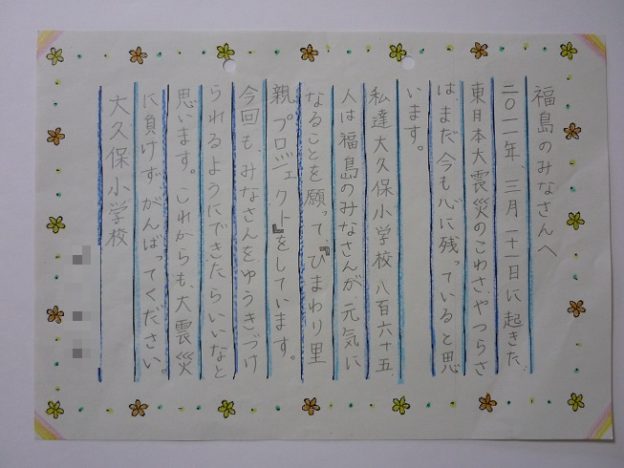 福島のみなさんへ
二〇一一年、三月十一日に起きた
東日本大震災のこわさやつらさ
はまだ今も心に残っていると思
います。
私達大久保小学校八百六十五
人は福島のみなさんが、元気に
なることを願って『ひまわり里
親プロジェクト』をしています。
今回も、みなさんをゆうきづけ
られるようにできたらいいなと
思います。これからも、大震災
に負けずがんばってください。
大久保小学校